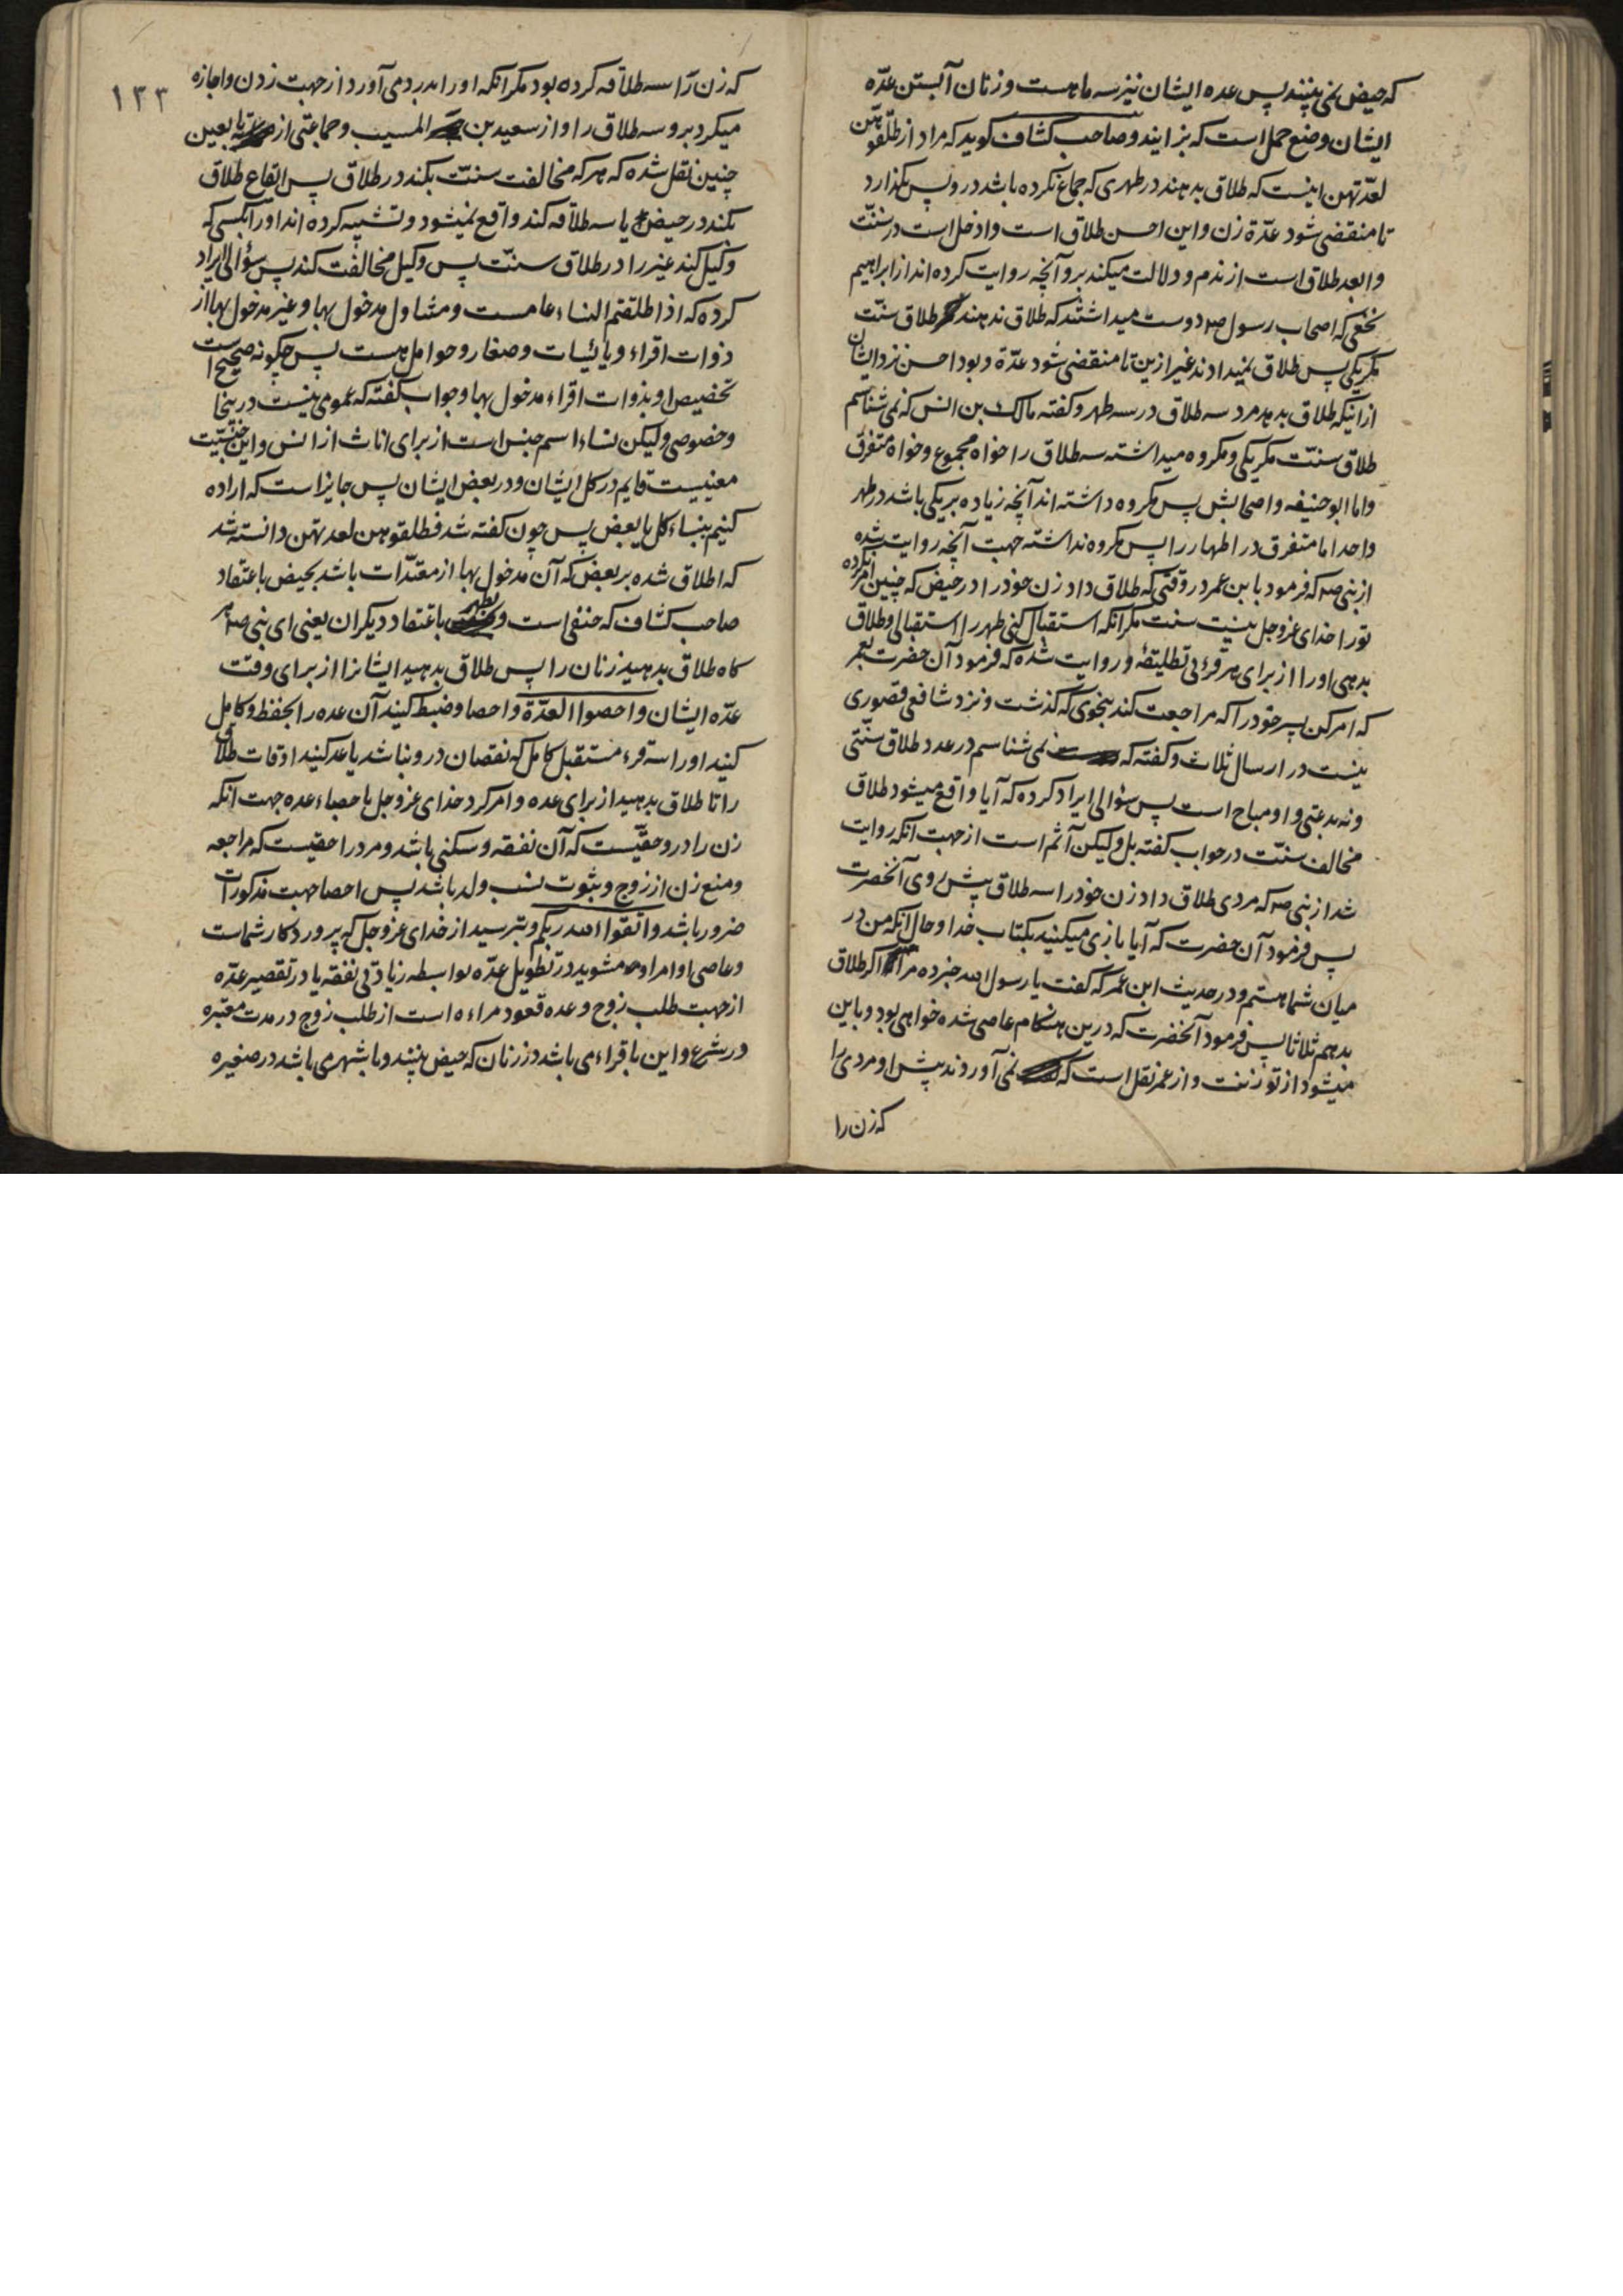 که حیض نمی بینند پس عده ایشان نیز سه ماهست و زنان آبستن عدّه
ایشان وضع حمل است که بزایند و صاحب کشاف کوید که مراد از طلّقوهنّ
لعدّتهن اینست که طلاق بدهند در طهری که جماع نکرده باشد درو پس بکذارد
تا منقضی شود عدّة زن و این احسن طلاق است و ادخل است در سنّت
و ابعد طلاق است از ندم و دلالت میکند برو آنچه روایت کرده اند از ابراهیم
نخعی که اصحاب رسول صم دوست میداشتند که طلاق ندهند طلاق سنّت
مکر یکی پس طلاق نمیدادند غیر ازین تا منقضی شود عدّة و بود احسن نزد ایشان
از اینکه طلاق بدهد مرد سه طلاق در سه طهر و کفته مالک بن انس که نمی شناسم
طلاق سنّت مکر یکی و مکروه میداشته سه طلاق را خواه مجموع و خواه متفرق
و اما ابو حنیفه و اصحابش پس مکروه داشته اند آنچه زیاده بر یکی باشد در طهر
واحد اما متفرق در اطهار را پس مکروه نداشته جهت آنچه روایت شده
از نبی صم که فرمود بابن عمر در وقتی که طلاق داد زن خود را در حیض که چنین امر نکرده
تو را خدای عز و جل نیست سنت مکر آنکه استقبال کنی طهر را استقبالی و طلاق
بدهی او را از برای هر قرئی تطلیقهٔ و روایت شده که فرمود آن حضرت بعمر
که امر کن پسر خود را که مراجعت کند بنحوی که کذشت و نزد شافعی قصوری
نیست در ارسال ثلاث و کفته که نمی شناسم در عدد طلاق سنّتی
و نه بدعتی و او مباح است پس سؤالی ایراد کرده که آیا واقع میشود طلاق
مخالف سنّت در جواب کفته بل ولیکن آثم است از جهت آنکه روایت
شد از نبی صم که مردی طلاق داد زن خود را سه طلاق پیش روی آنحضرت
پس فرمود آن حضرت که آیا بازی میکنید بکتاب خدا و حال آنکه من در
میان شما هستم و در حدیث ابن عمر که کفت یا رسول الله خبر ده مرا اکر طلاق
بدهم ثلاثا پس فرمود آنحضرت که درین هنکام عاصی شده خواهی بود و باین
میشود از تو زنت و از عمر نقل است که نمی آوردند پیش او مردی را
که زن را
۱۳۳
که زن را سه طلاقه کرده بود مکر آنکه او را بدرد می آورد از جهت زدن و اجازه
میکرد برو سه طلاق را و از سعید بن المسیب و جماعتی از تابعین
چنین نقل شده که هر که مخالفت سنّت بکند در طلاق پس ایقاع طلاق
بکند در حیض یا سه طلاقه کند واقع نمیشود و تشبیه کرده اند او را بکسی که
وکیل کند غیر را در طلاق سنّت پس وکیل مخالفت کند پس سؤالی ایراد
کرده که اذا طلقتم النساء عامست و متناول مدخول بها و غیر مدخول بها از
ذوات اقراء و یائسات و صغار و حوامل هست پس چکونه صحیح است
تخصیص او بذوات اقراء مدخول بها و جواب کفته که عمومی نیست درینجا
و خصوصی ولیکن نساء اسم جنس است از برای اناث از انس و این جنسیّت
معنییست قایم در کل ایشان و در بعض ایشان پس جایز است که اراده
کنیم بنساء کل یا بعض پس چون کفته شد فطلقوهن لعدتهن دانسته شد
که اطلاق شده بر بعض که آن مدخول بها از معتدّات باشد بحیض باعتقاد
صاحب کشاف که حنفی است و بطهر باعتقاد دیکران یعنی ای نبی صم هر
کاه طلاق بدهید زنان را پس طلاق بدهید ایشانرا از برای وقت
عدّه ایشان و احصوا العدّة و احصا و ضبط کنید آن عده را بحفظ و کامل
کنید او را سه قرء مستقبل کامل که نقصان درو نباشد یا عد کنید اوقات طلاق
را تا طلاق بدهید از برای عده و امر کرد خدای عز و جل باحصاء عده جهت آنکه
زن را درو حقیّست که آن نفقه و سکنی باشد و مرد را حقیست که مراجعه
و منع زن از زوج و ثبوت نسب ولد باشد پس احصا جهت مذکورات
ضرور باشد و اتقوا الله ربکم و بترسید از خدای عز و جل که پروردکار شماست
و عاصی اوامر او مشوید در تطویل عدّه بواسطه زیادتی نفقه یا در تقصیر عدّه
از جهت طلب زوج و عده قعود مراءه است از طلب زوج در مدت معتبره
در شرع و این باقراء می باشد در زنان که حیض بینند و باشهر می باشد در صغیره